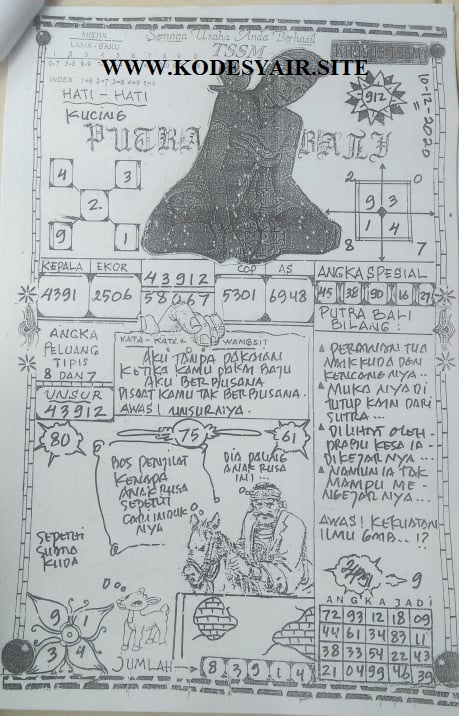 MISTIK
LAMA - BARU
Semoga Usaha Anda Berhasil
TSSM
WWW.KODESYAIR.SITE
INDEX 1=6 2=7 3=8 4=9 5=0
HATI - HATI
KUCING
PUTRA BALI
912
10-12-2020
4 3
2.
9 1
2 0
9 3
1 4
8 7
KEPALA EKOR
4391 2506
43912
58067
COP AS
5301 6948
ANGKA SPESIAL
45 38 90 16 27
PUTRA BALI
BILANG :
ANGKA
PELUANG
TIPIS
8 DAN 7
UNSUR
43912
KATA - KATA WANGSIT
AKU TANPA PAKAIAN
KETIKA KAMU PAKAI BAJU
AKU BERBUSANA
DISAAT KAMU TAK BERBUSANA.
AWAS! UNSURNYA.
PERAWAN TUA
NAIK KUDA DEN
KENCANG NYA..
MUKA NYA DI
TUTUP KAIN DARI
SUTRA...
DILIHAT OLEH
PRABU KESA IA
DIKEJAR NYA...
NAMUN IA TAK
MAMPU ME-
NGEJAR NYA...
AWAS! KEKUATAN
ILMU GMB..!?
80
75
61
BOS PENJILAT
KENAPA
ANAK RUSA
SEPERTI
CARI INDUK
NYA
DIA PALING
ANAK RUSA
INI...
SEPERTI
SUARA
KUDA
9 1
3 4
JUMLAH
8 3 9 1 4
9
ANGKA JADI
72 93 12 18 09
44 61 34 83 11
38 33 54 22 43
21 04 99 46 39